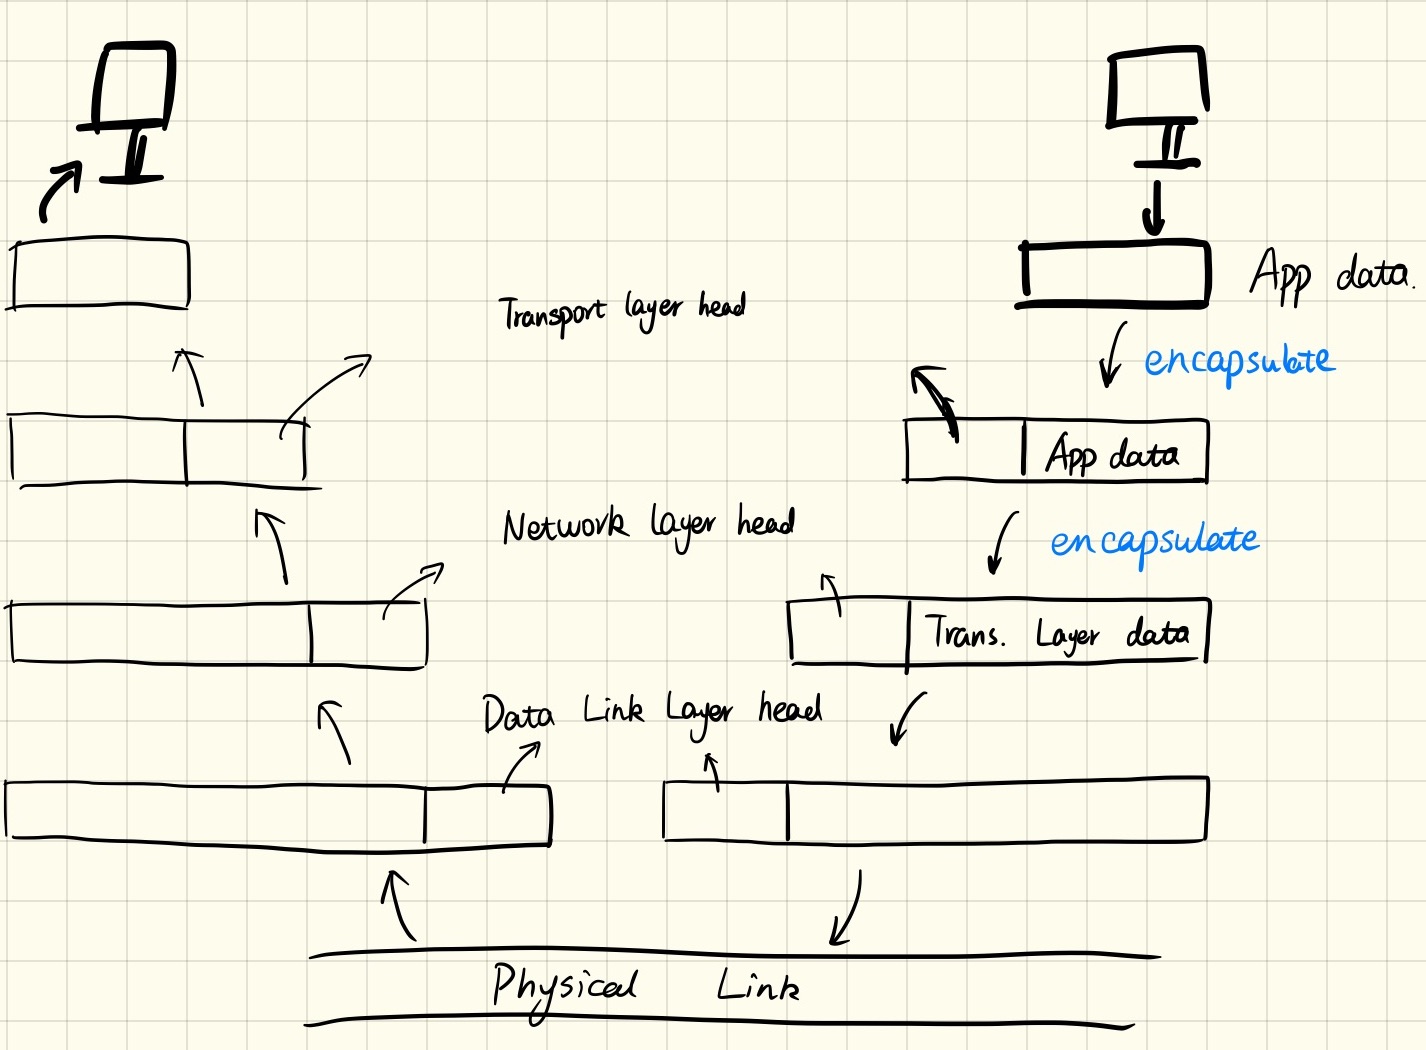 App data.
Transport layer head
encapsulate
App data
Network layer head
encapsulate
Trans. Layer data
Data Link Layer head
Physical Link